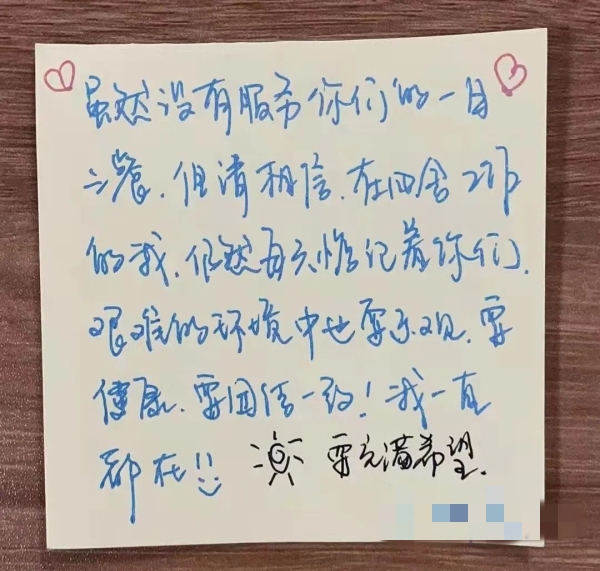 虽然没有服务你们的一日
三餐.但请相信.在四舍2邙
的我.仍然每天惦记着你们.
艰难的环境中也要乐观.要
健康.要团结一致！我一直
都在!!
要充满希望.